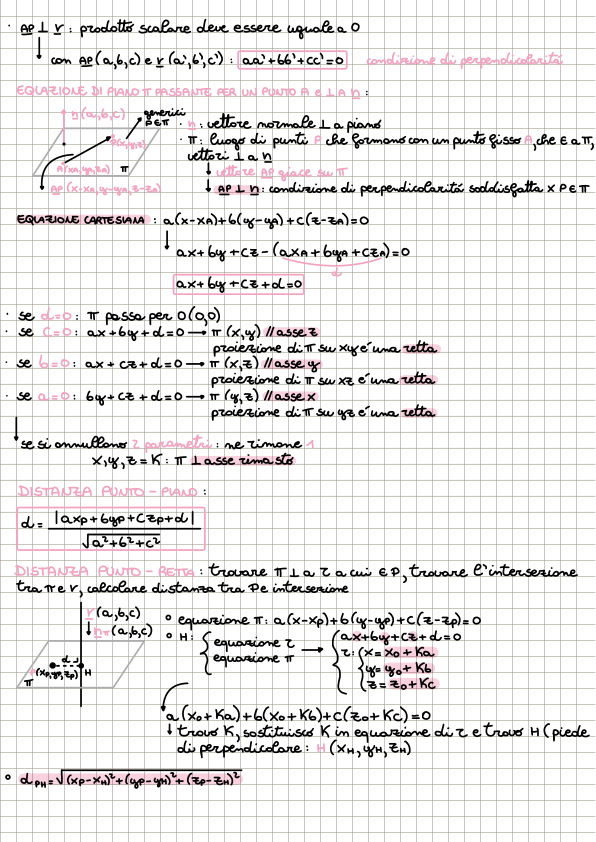 · AP ⊥ r : prodotto scalare deve essere uguale a 0
↓ con AP (a,b,c) e r (a',b',c') : aa'+bb'+cc'=0 condizione di perpendicolarità
EQUAZIONE DI PIANO π PASSANTE PER UN PUNTO A e ⊥ A n :
n (a,b,c)
generici P ∈ π
P(x,y,z)
A(xA,yA,zA) π
AP (x-xA, y-yA, z-zA)
· n : vettore normale ⊥ a piano
· π : luogo di punti P che formano con un punto fisso A, che ∈ a π,
vettori ⊥ a n
↓ vettore AP giace su π
↓ AP ⊥ n : condizione di perpendicolarità soddisfatta x P ∈ π
EQUAZIONE CARTESIANA : a(x-xA)+b(y-yA)+c(z-zA)=0
↓
ax+by+cz-(axA+byA+czA)=0
d
ax+by+cz+d=0
· se d=0 : π passa per O(0,0)
· se c=0 : ax+by+d=0 → π (x,y) // asse z
proiezione di π su xy è una retta
· se b=0 : ax+cz+d=0 → π (x,z) // asse y
proiezione di π su xz è una retta
· se a=0 : by+cz+d=0 → π (y,z) // asse x
proiezione di π su yz è una retta
↓ se si annullano 2 parametri : ne rimane 1
x,y,z = K : π ⊥ asse rimasto
DISTANZA PUNTO - PIANO :
d = |axP+byP+czP+d| / √a²+b²+c²
DISTANZA PUNTO - RETTA : trovare π ⊥ a r a cui ∈ P, trovare l'intersezione
tra π e r, calcolare distanza tra P e intersezione
r (a,b,c)
nπ (a,b,c)
d
(xP,yP,zP) H
π
° equazione π : a(x-xP)+b(y-yP)+c(z-zP)=0
° H : { equazione r → { ax+by+cz+d=0
equazione π r : { x=x0+Ka
y=y0+Kb
z=z0+Kc
a(x0+Ka)+b(x0+Kb)+c(z0+Kc)=0
↓ trovo K, sostituisco K in equazione di r e trovo H (piede
di perpendicolare : H (xH,yH,zH)
° dPH = √(xP-xH)²+(yP-yH)²+(zP-zH)²